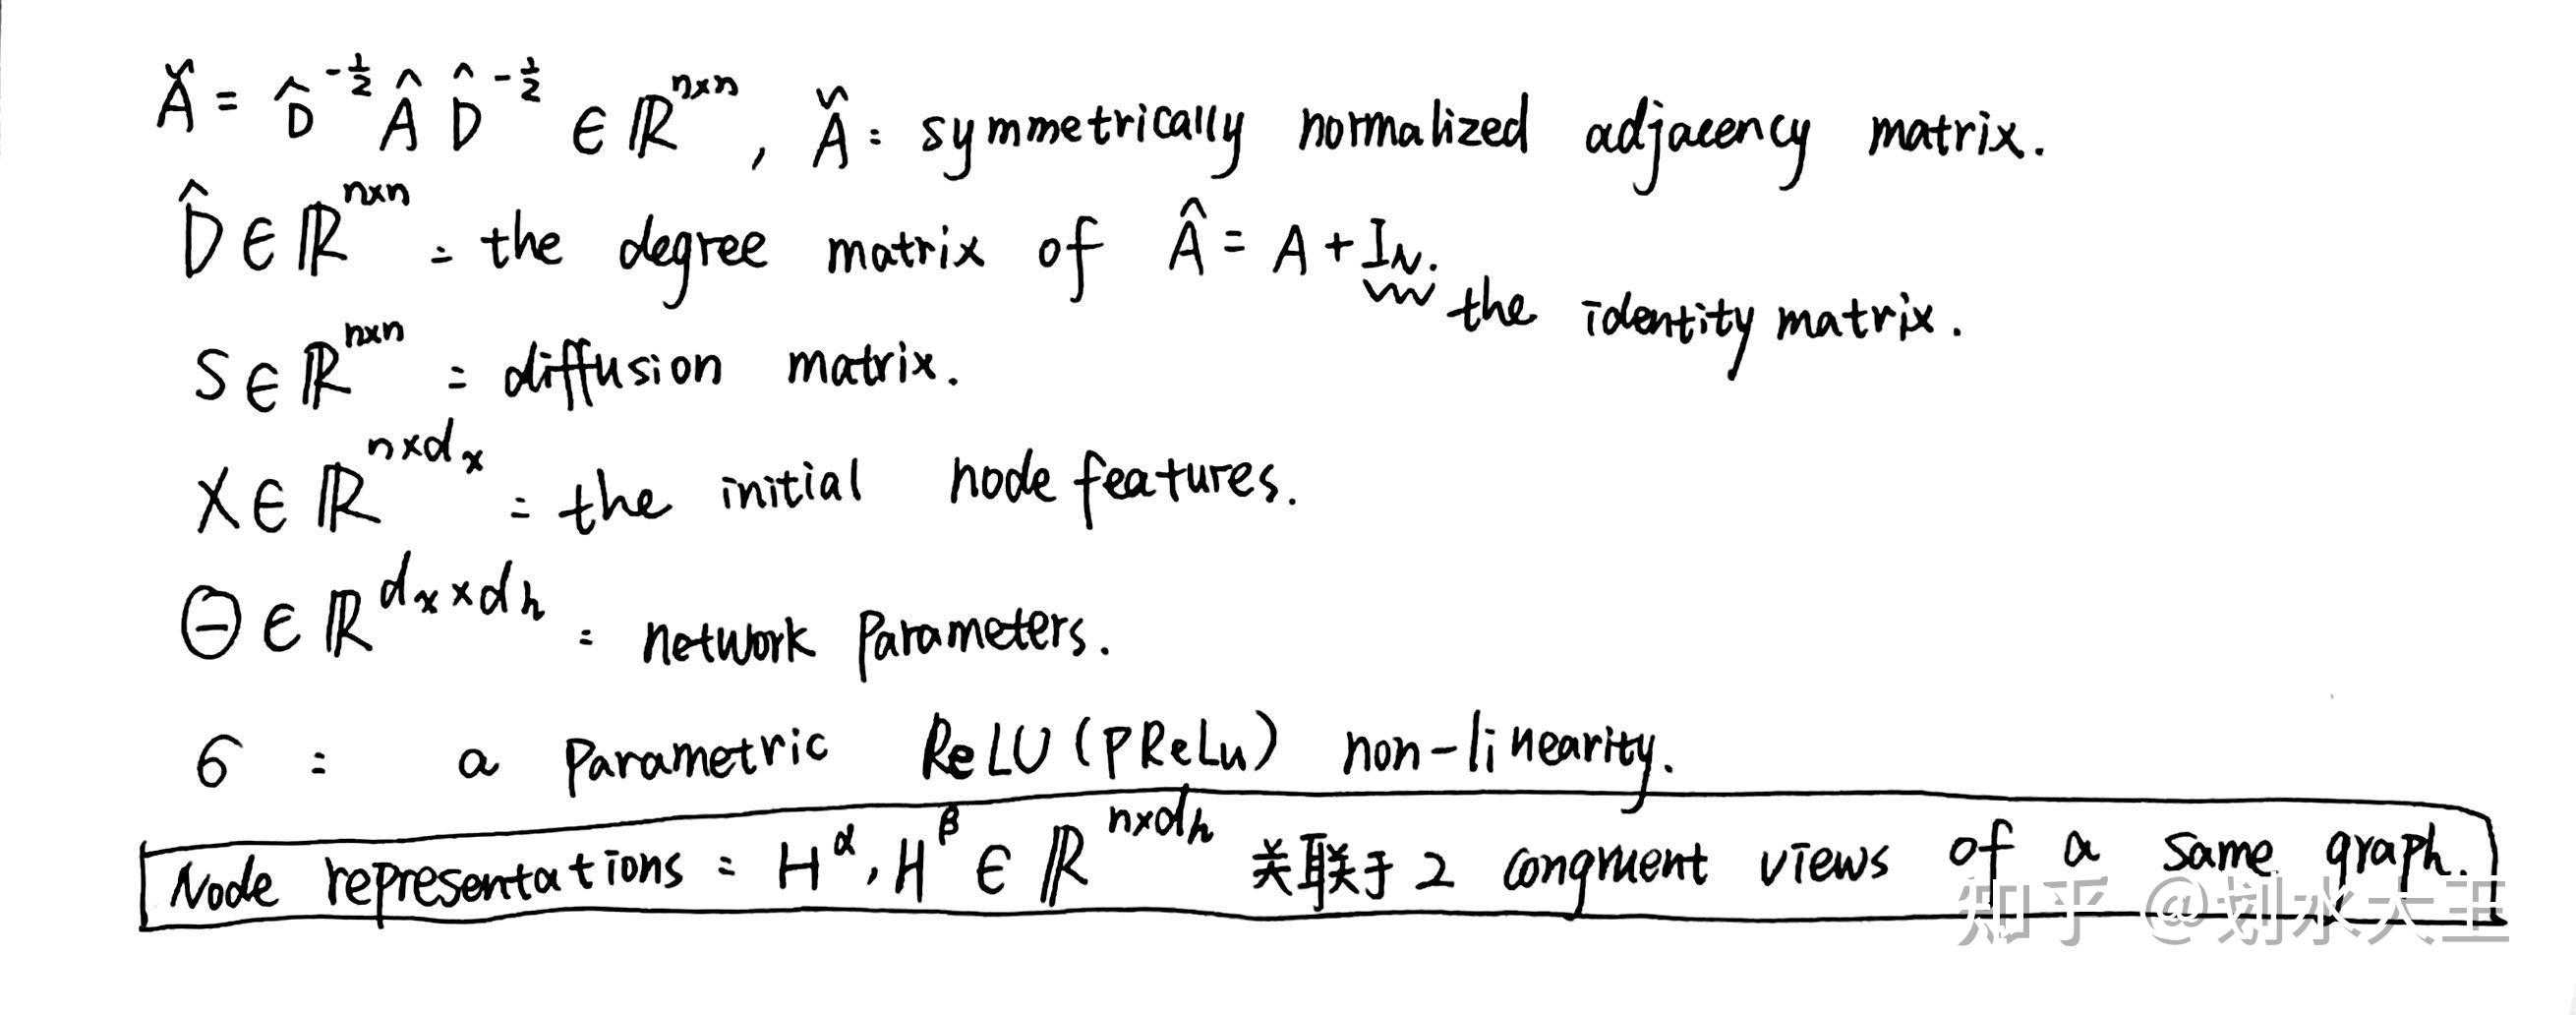 Ǎ = D̂^{-1/2} Â D̂^{-1/2} ∈ ℝ^{n×n}, Ǎ: symmetrically normalized adjacency matrix.
D̂ ∈ ℝ^{n×n} : the degree matrix of Â = A + I_N.
the identity matrix.
S ∈ ℝ^{n×n} : diffusion matrix.
X ∈ ℝ^{n×d_x} : the initial node features.
Θ ∈ ℝ^{d_x×d_h} : network parameters.
σ : a parametric ReLU (PReLu) non-linearity.
Node representations : H^α, H^β ∈ ℝ^{n×d_h} 关联于 2 congruent views of a same graph.
知乎 @划水大王